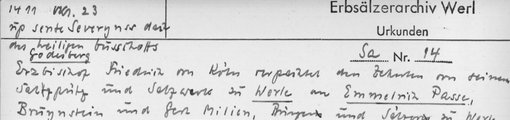 1411 Okt. 23
Erbsälzerarchiv Werl
up sente Severyns dach
Urkunden
des heiligen busschoffs
Godesberg
Sa Nr. 14
Erzbischof Friedrich von Köln verpachtet den Zehnten von seinem
Salzpfütz und Salzwerk zu Werle an Emmelrich Passe,
Bruynstein und Gert Milien, Bürgern und Sälzern zu Werl